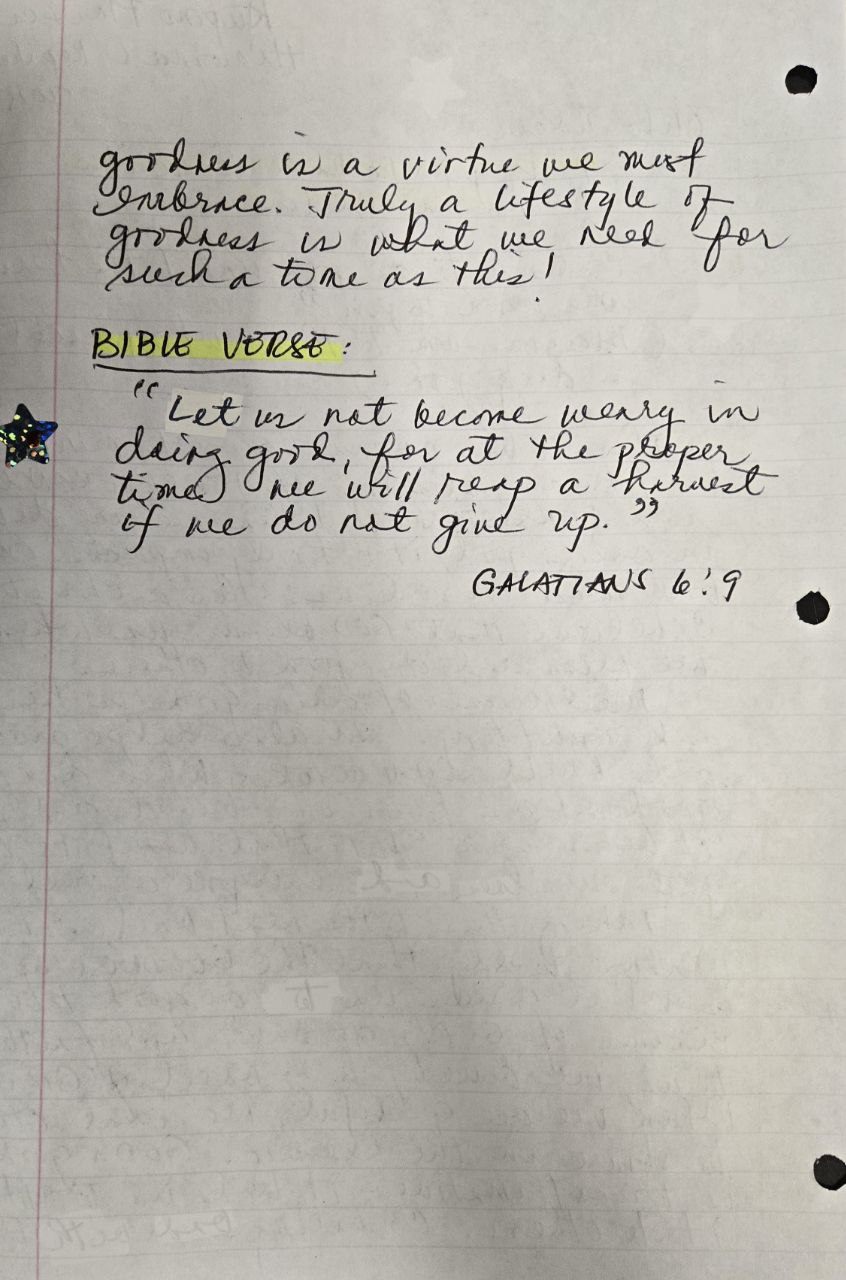 goodness is a virtue we must
embrace. Truly a lifestyle of
goodness is what we need for
such a time as this!
BIBLE VERSE:
"Let us not become weary in
doing good, for at the proper
time we will reap a harvest
if we do not give up."
GALATIANS 6:9